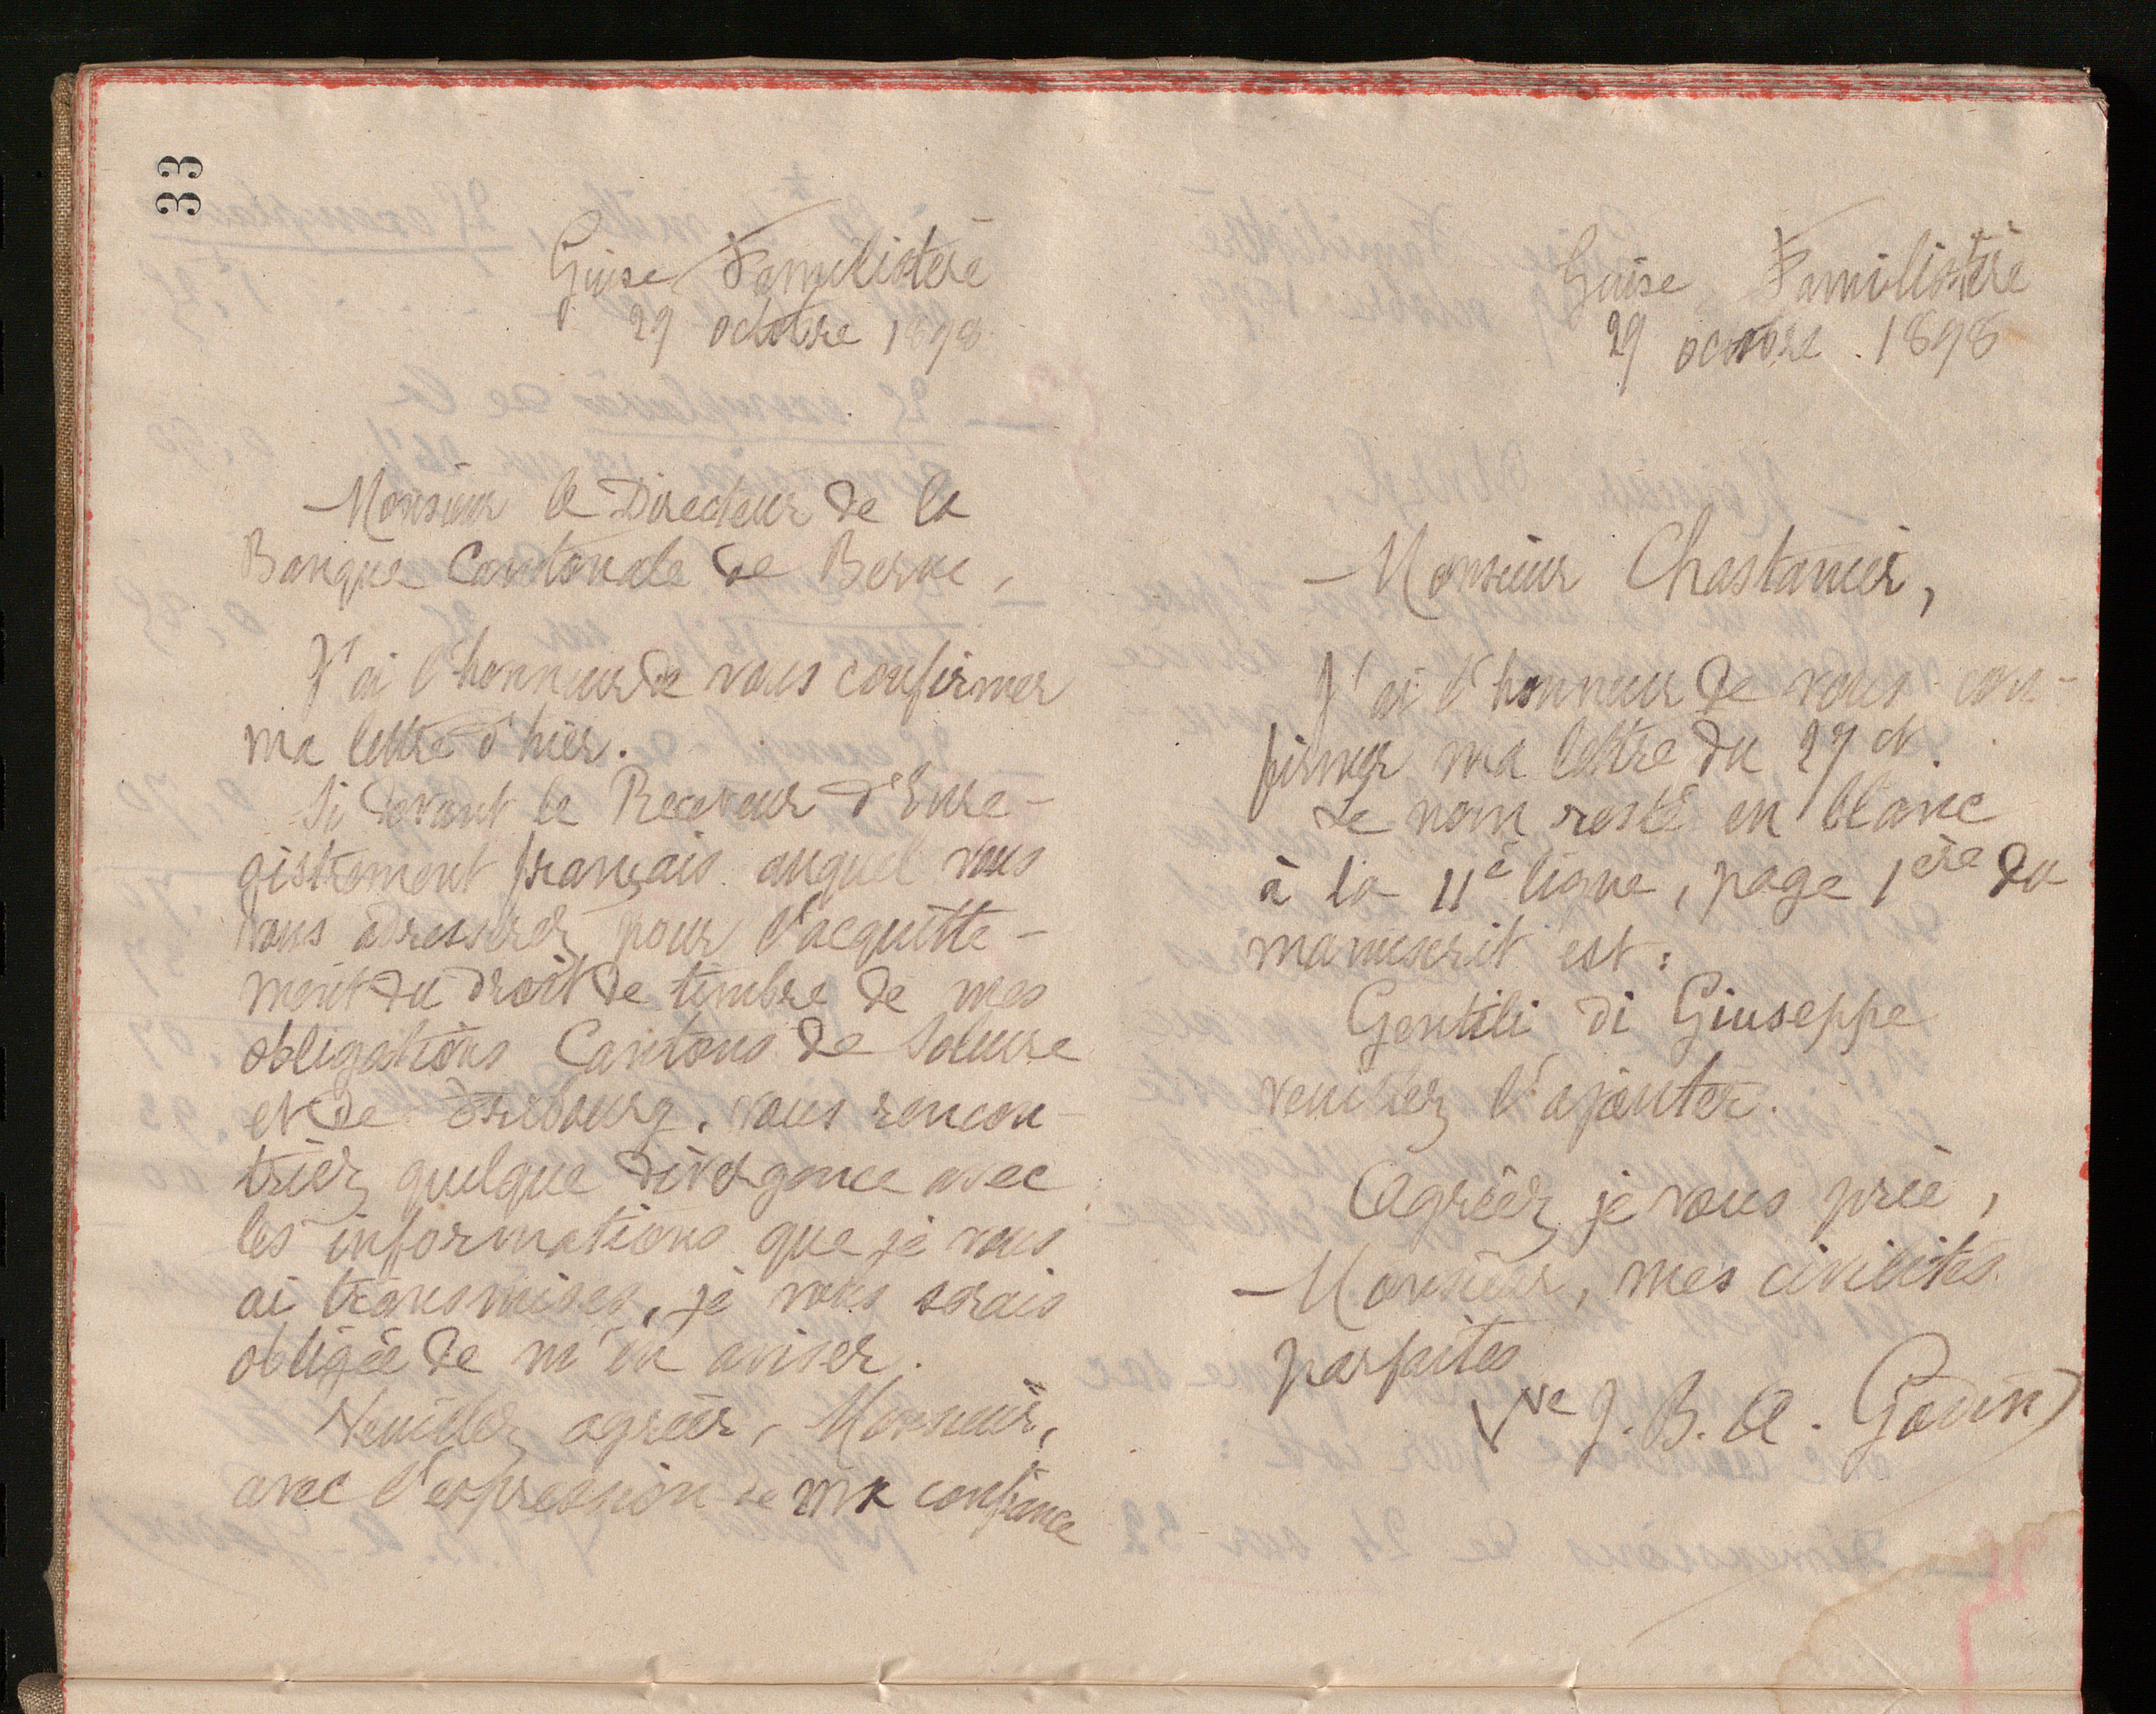 33
Guise Familistère
29 octobre 1898
Monsieur le Directeur de la
Banque Cantonale de Berne,
J'ai l'honneur de vous confirmer
ma lettre d'hier.
Si devant le Receveur d'Enre-
gistrement français auquel vous
vous adresserez pour l'acquitte-
ment du droit de timbre de mes
obligations Cantons de Soleure
et de Fribourg, vous rencon-
triez quelque divergence avec
les informations que je vous
ai transmises, je vous serais
obligée de m'en aviser.
Veuillez agréer, Monsieur,
avec l'expression de ma confiance
Guise Familistère
29 octobre 1898
Monsieur Chastanier,
J'ai l'honneur de vous con-
firmer ma lettre du 27 ct.
Le nom resté en blanc
à la 11e ligne, page 1ère du
manuscrit est :
Gentili di Giuseppe
veuillez l'ajouter.
Agréez, je vous prie,
Monsieur, mes civilités
parfaites
Vve J. B. A. Godin